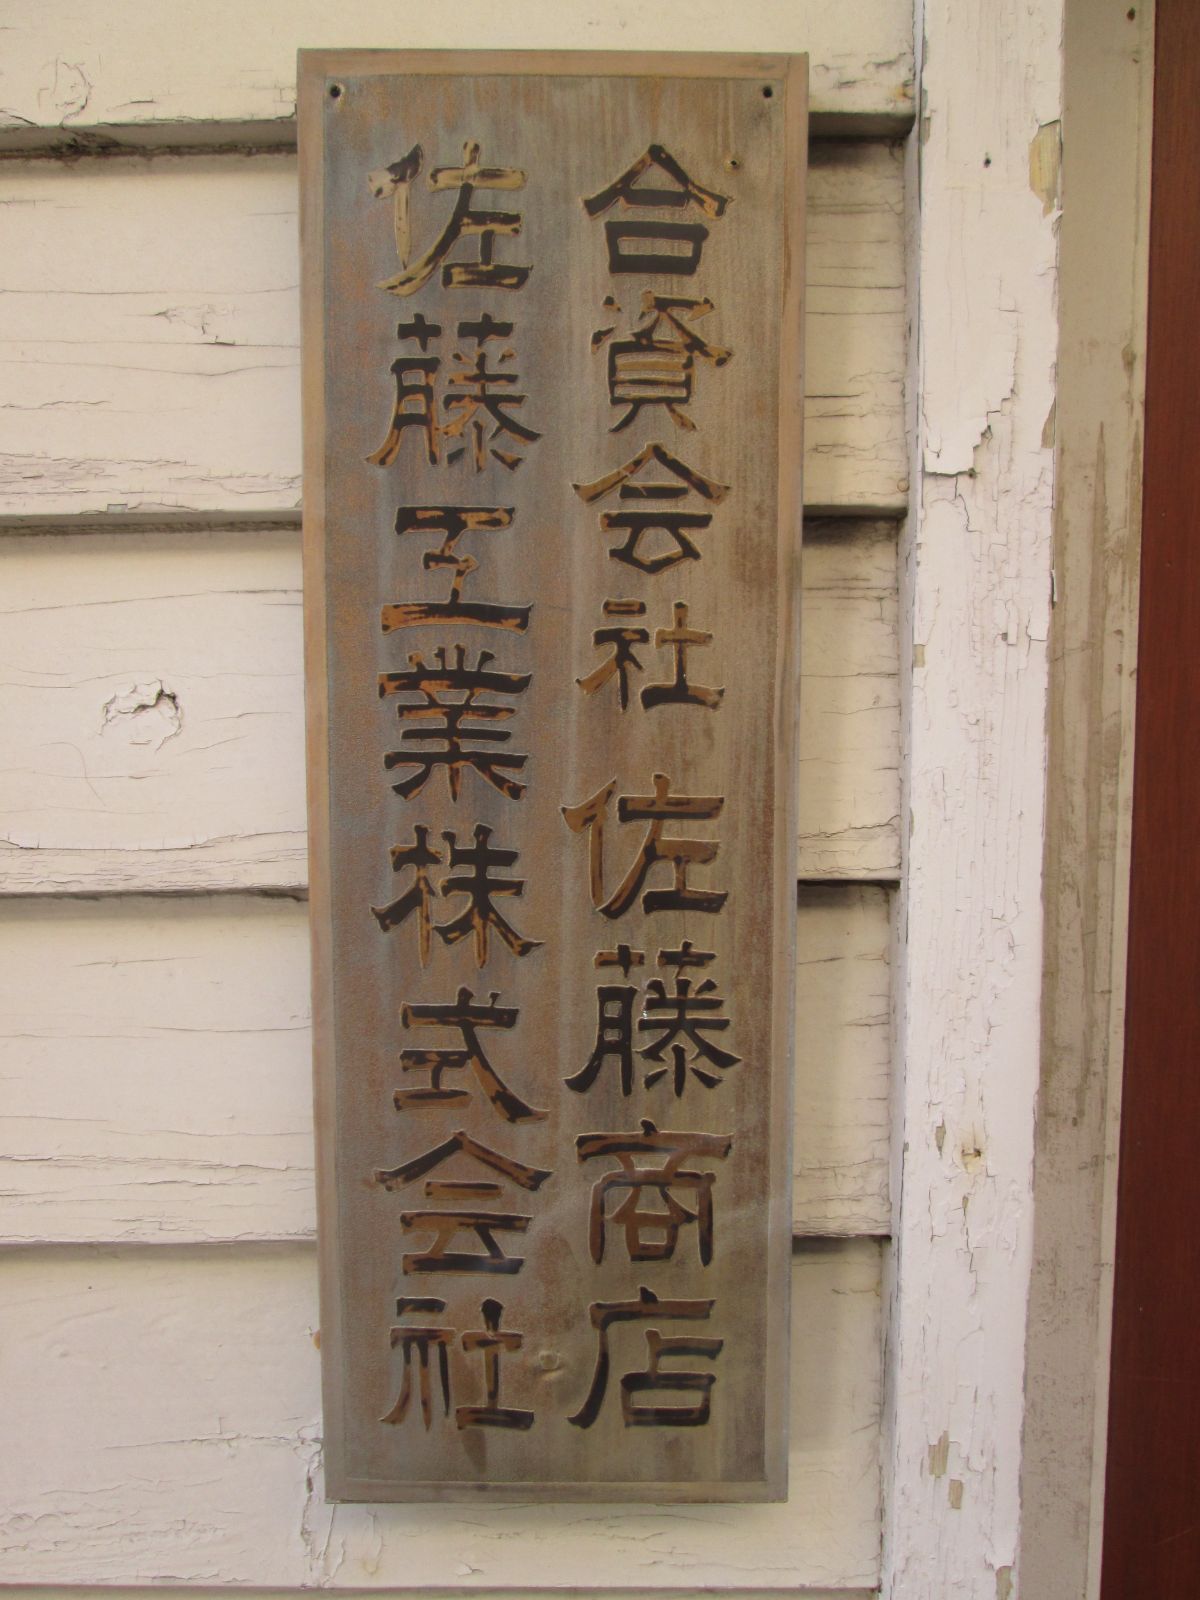 合資会社佐藤商店
佐藤工業株式会社